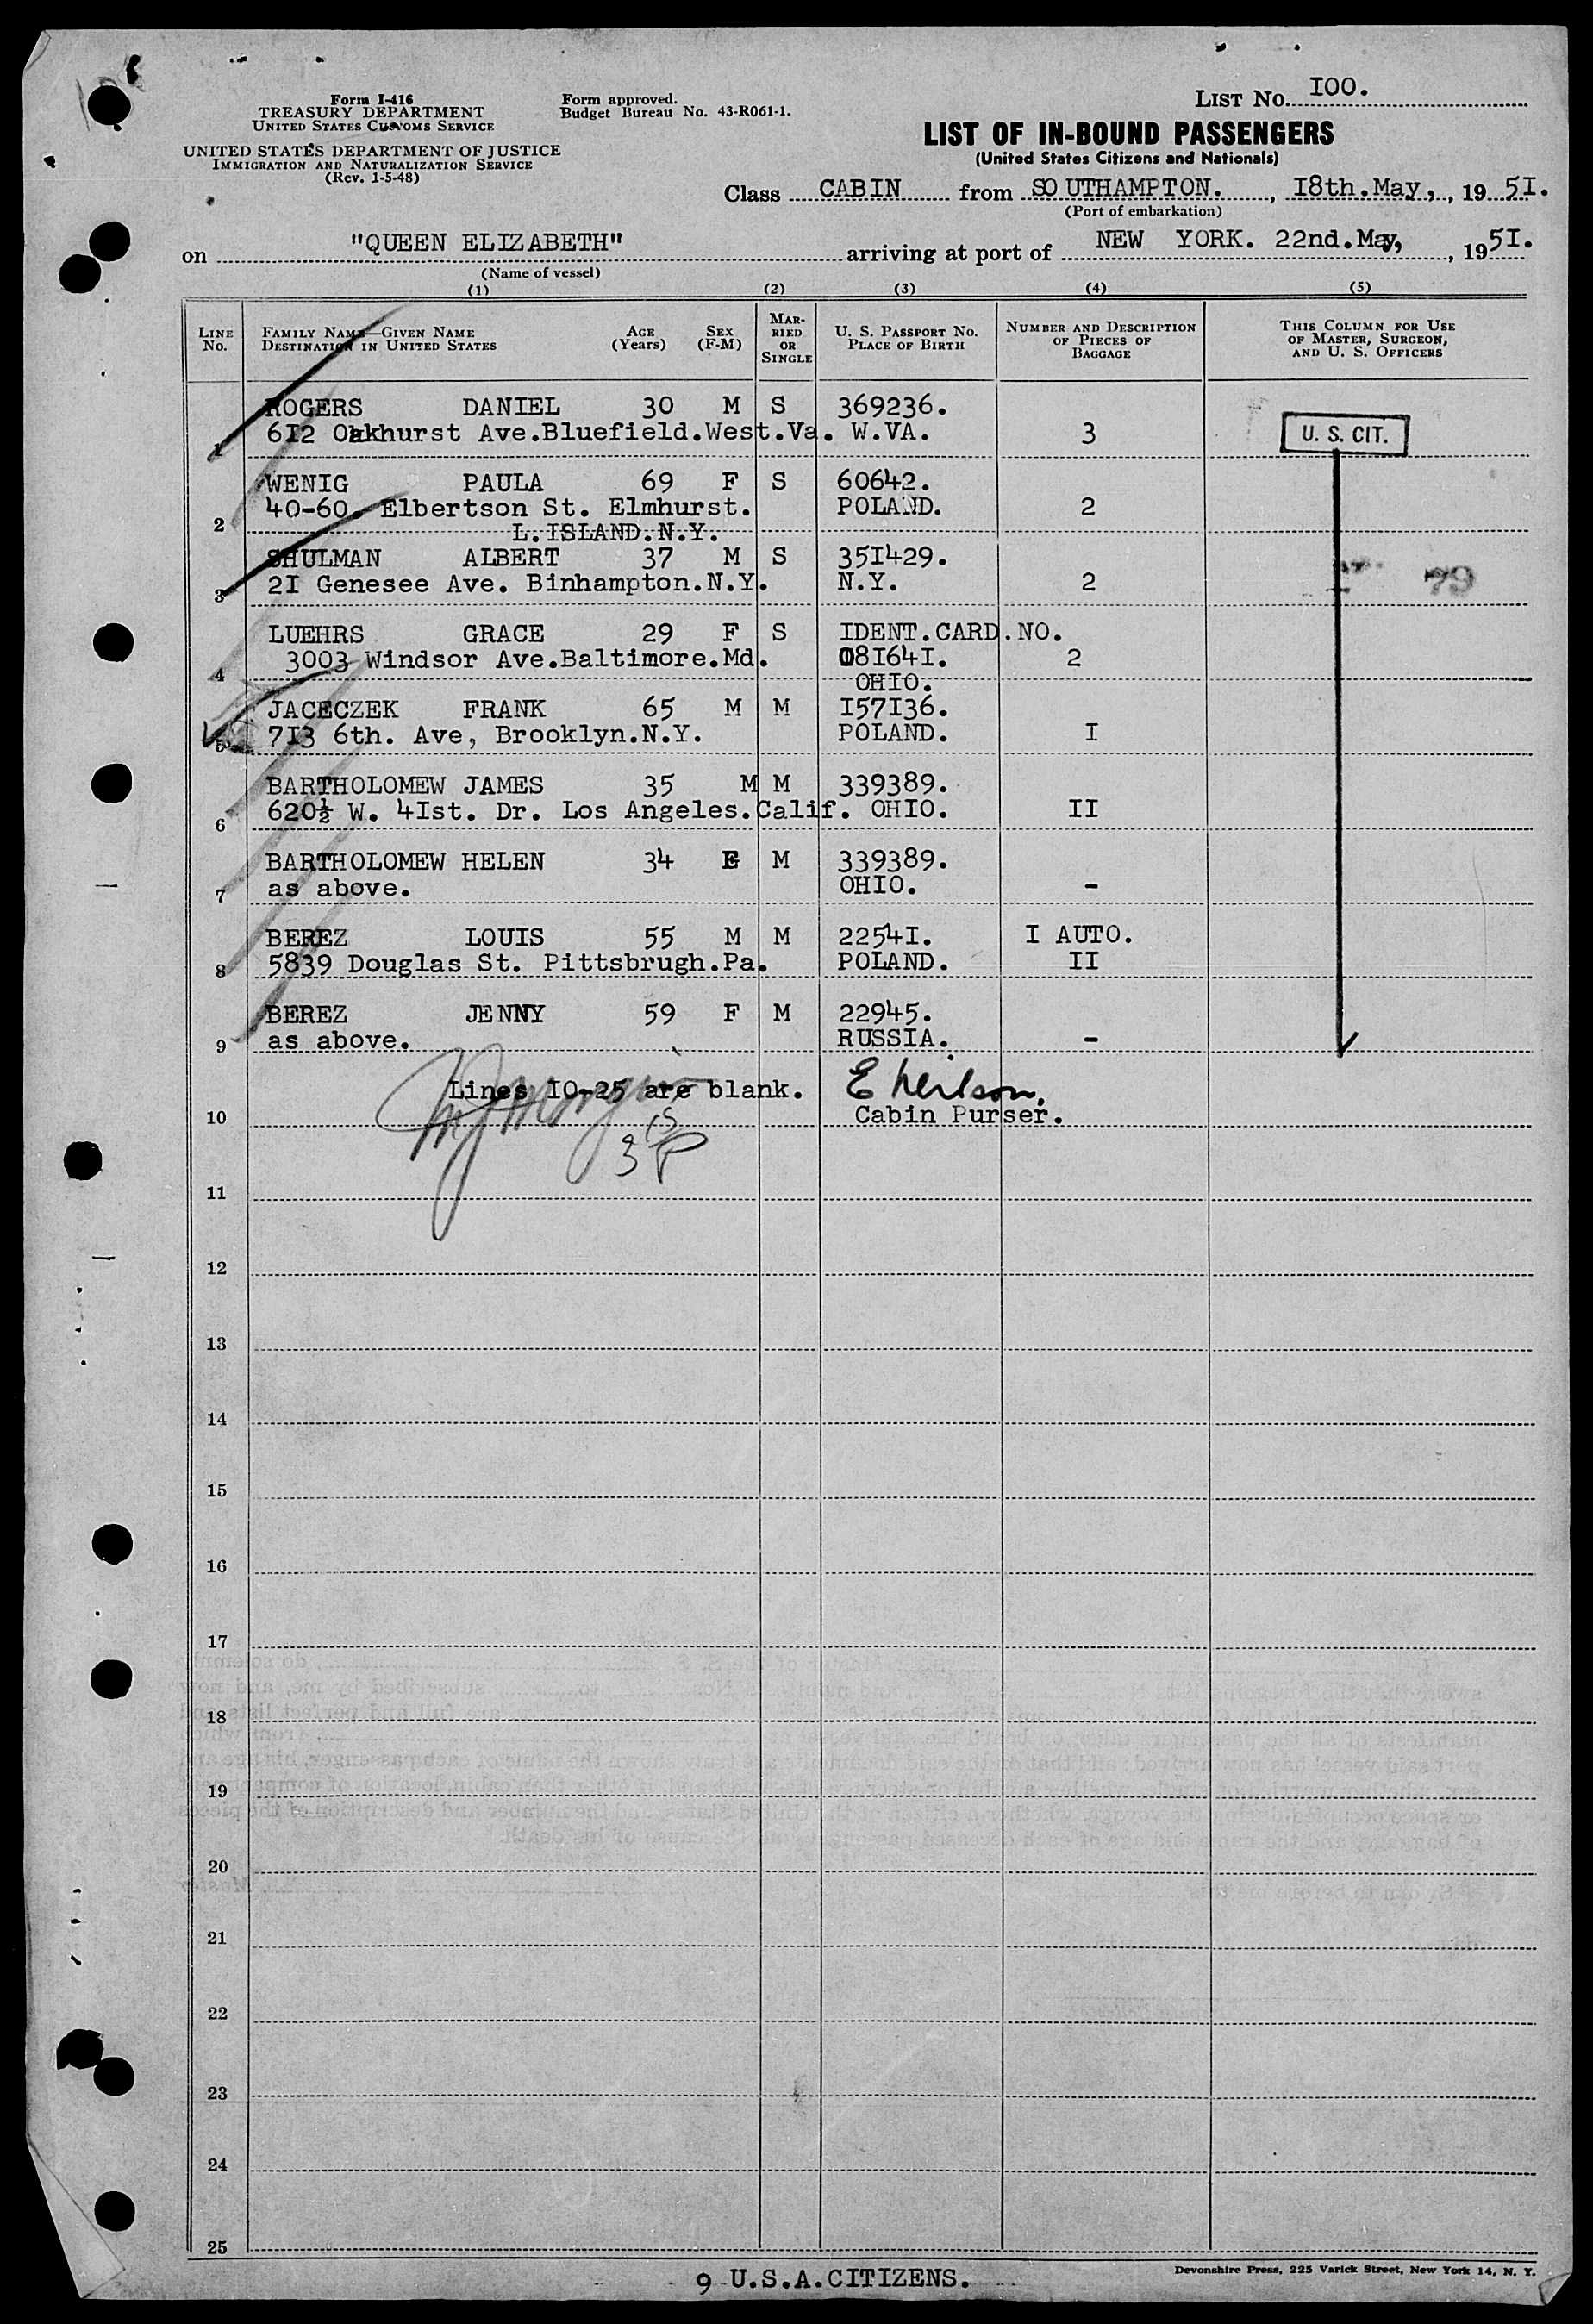 LIST NO. I00.
Form I-416
TREASURY DEPARTMENT
UNITED STATES CUSTOMS SERVICE
Form approved.
Budget Bureau No. 43-R061-1.
UNITED STATES DEPARTMENT OF JUSTICE
IMMIGRATION AND NATURALIZATION SERVICE
(Rev. 1-5-48)
LIST OF IN-BOUND PASSENGERS
(United States Citizens and Nationals)
Class CABIN from SOUTHAMPTON., I8th.May,, 19 5I.
(Port of embarkation)
on "QUEEN ELIZABETH" arriving at port of NEW YORK. 22nd.May, , 195I.
(Name of vessel)
(1) (2) (3) (4) (5)
LINE NO. FAMILY NAME—GIVEN NAME DESTINATION IN UNITED STATES AGE (Years) SEX (F-M) MARRIED OR SINGLE U. S. PASSPORT NO. PLACE OF BIRTH NUMBER AND DESCRIPTION OF PIECES OF BAGGAGE THIS COLUMN FOR USE OF MASTER, SURGEON, AND U. S. OFFICERS
ROGERS DANIEL 30 M S 369236.
1 6I2 Oakhurst Ave.Bluefield.West.Va. W.VA. 3 U. S. CIT.
WENIG PAULA 69 F S 60642.
2 40-60. Elbertson St. Elmhurst. POLAND. 2
L.ISLAND.N.Y.
SHULMAN ALBERT 37 M S 35I429.
3 2I Genesee Ave. Binhampton.N.Y. N.Y. 2 79
LUEHRS GRACE 29 F S IDENT.CARD.NO.
4 3003 Windsor Ave.Baltimore.Md. 08I64I. 2
OHIO.
JACECZEK FRANK 65 M M I57I36.
5 7I3 6th. Ave, Brooklyn.N.Y. POLAND. I
BARTHOLOMEW JAMES 35 M M 339389.
6 620½ W. 4Ist. Dr. Los Angeles.Calif. OHIO. II
BARTHOLOMEW HELEN 34 F M 339389.
7 as above. OHIO. -
BEREZ LOUIS 55 M M 2254I. I AUTO.
8 5839 Douglas St. Pittsbrugh.Pa. POLAND. II
BEREZ JENNY 59 F M 22945.
9 as above. RUSSIA. -
Lines IO-25 are blank. E Neilson.
10 Cabin Purser.
11
12
13
14
15
16
17
18
19
20
21
22
23
24
25
9 U.S.A.CITIZENS.
Devonshire Press, 225 Varick Street, New York 14, N. Y.